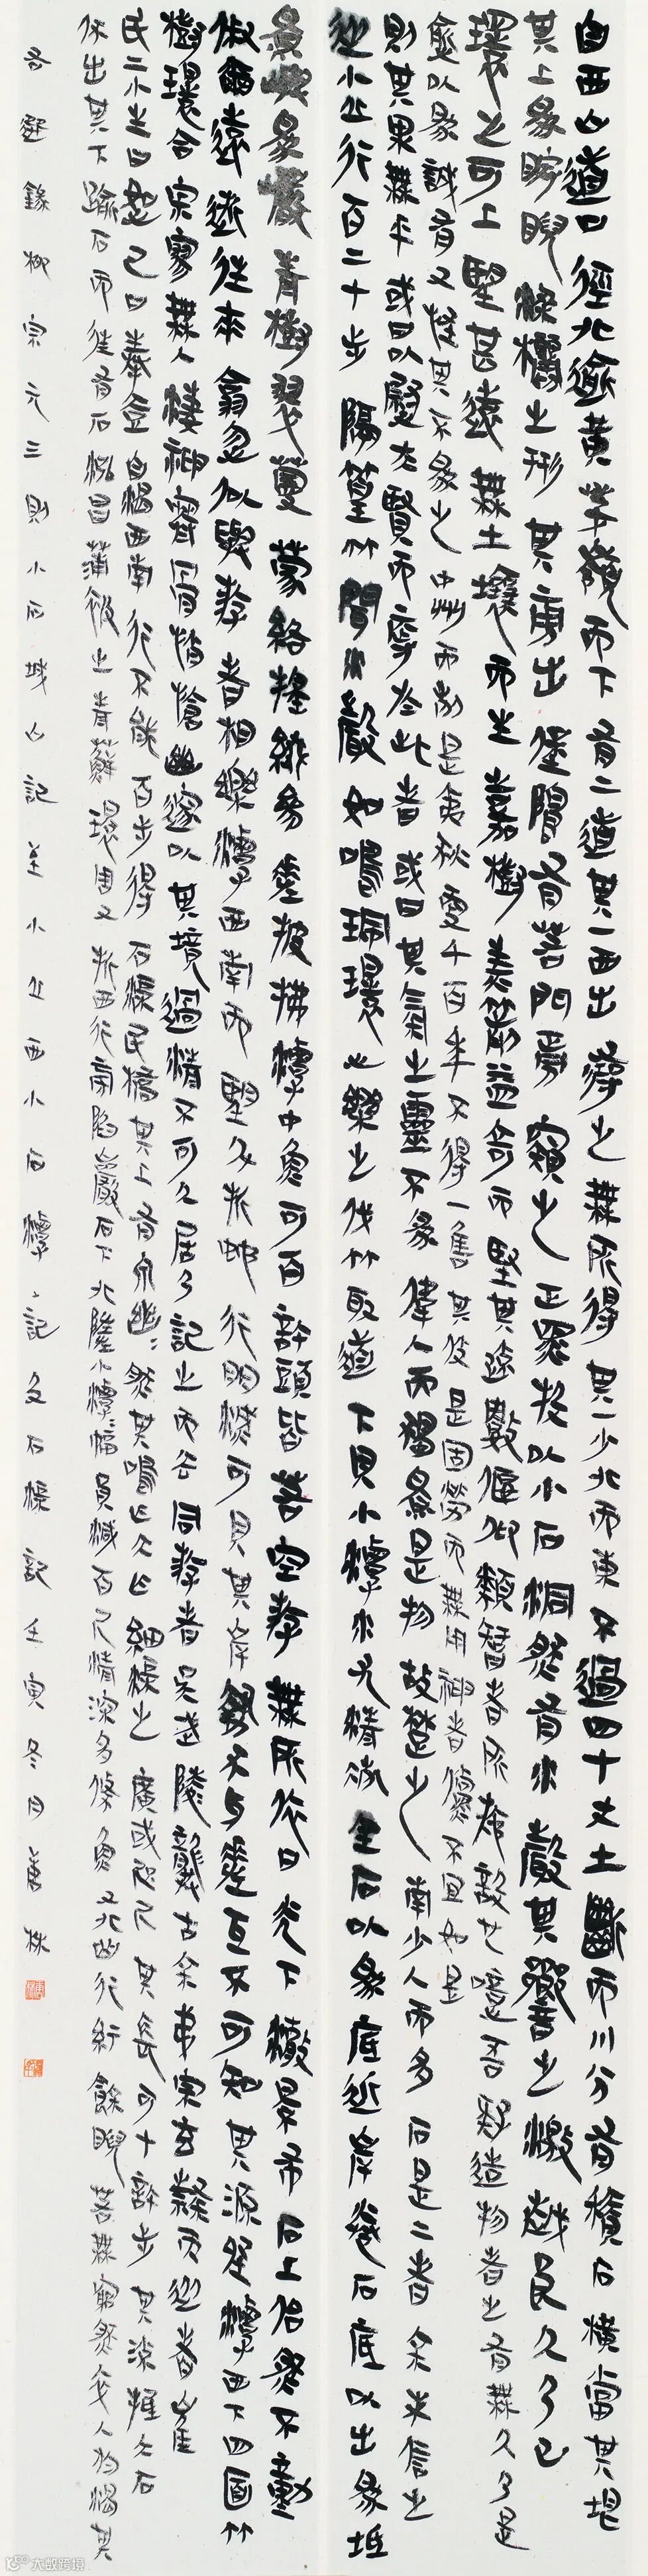 自西山道口徑北踰黃茅嶺而下有二道其一西出尋之無所得其一少北而東不過四十丈土斷而川分有積石橫當其垠
其上為睥睨梁欐之形其旁出堡塢有若門焉窺之正黑投以小石洞然有水聲其響之激越良久乃已
環之可上望甚遠無土壤而生嘉樹美箭益奇而堅其疏數偃仰類智者所施設也噫吾疑造物者之有無久及是
愈以為誠有又怪其不為之中州而列是夷狄更千百年不得一售其伎是固勞而無用神者儻不宜如是
則其果無乎或曰以慰夫賢而辱於此者或曰其氣之靈不為偉人而獨為是物故楚之南少人而多石是二者余未信之
從小丘行百二十步隔篁竹聞水聲如鳴珮環心樂之伐竹取道下見小潭水尤清冽全石以為底近岸卷石底以出為坻
為嶼為巖青樹翠蔓蒙絡搖綴參差披拂潭中魚可百許頭皆若空游無所依日光下澈影布石上佁然不動
俶爾遠逝往來翕忽似與游者相樂潭西南而望斗折蛇行明滅可見其岸勢犬牙差互不可知其源坐潭西下四面竹
樹環合寂寥無人悽神寒骨悄愴幽邃以其境過清不可久居乃記之而去同游者吳武陵龔古余弟宗玄隸而從者崔
氏二小生曰恕己曰奉壹自渴西南行不能百步得石渠民橋其上有泉幽幽然其鳴乍大乍細渠之廣或咫尺其長可十許步其流抵大石
伏出其下踰石而往有石泓昌蒲被之青蘚環周又折西行旁陷巖石下北墮小潭潭幅員減百尺清深多鯈魚又北曲行紆餘睨若無窮然卒入於渴其
右選錄柳宗元三則小石城山記至小丘西小石潭記及石渠記壬寅冬月
大數跨境